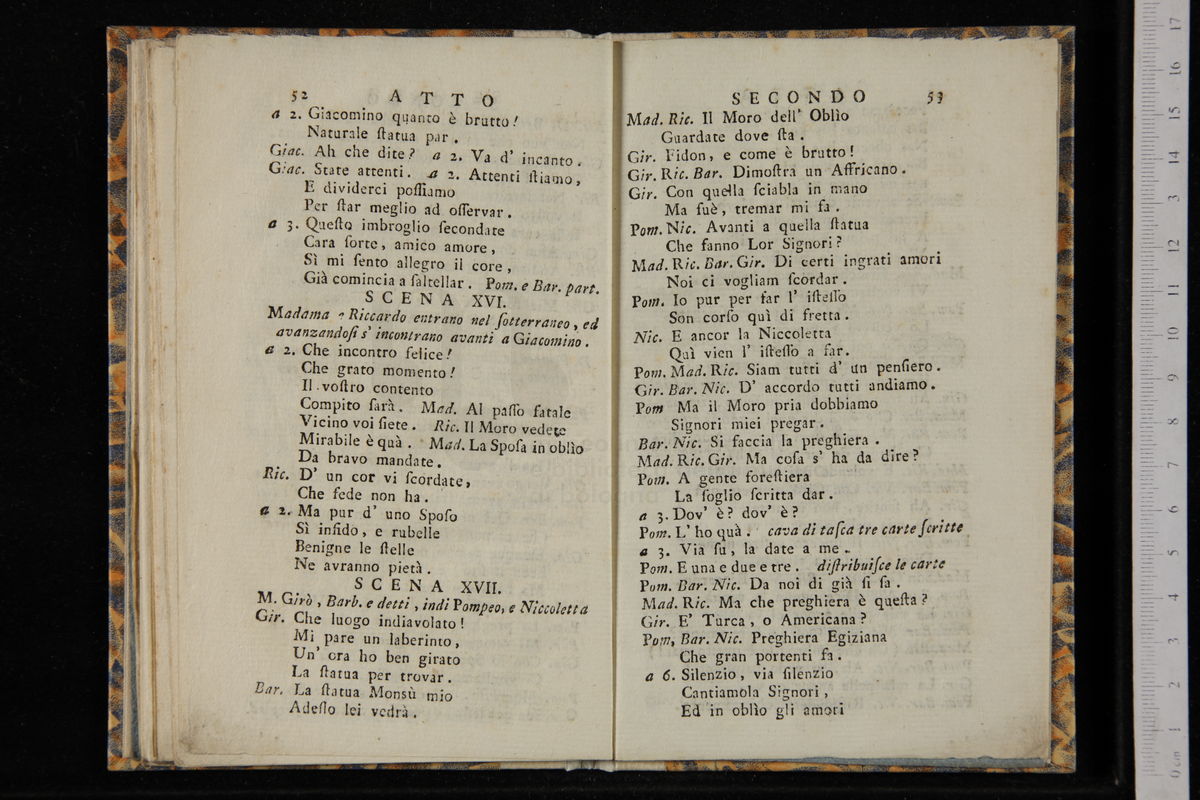 52 ATTO
a 2. Giacomino quanto è brutto!
Naturale ſtatua par.
Giac. Ah che dite? a 2. Va d' incanto.
Giac. State attenti. a 2. Attenti ſtiamo,
E dividerci poſſiamo
Per ſtar meglio ad oſſervar.
a 3. Queſto imbroglio ſecondate
Cara ſorte, amico amore,
Sì mi ſento allegro il core,
Già comincia a ſaltellar. Pom. e Bar. part.
SCENA XVI.
Madama e Riccardo entrano nel ſotterraneo, ed
avanzandoſi s' incontrano avanti a Giacomino.
a 2. Che incontro felice!
Che grato momento!
Il voſtro contento
Compito ſarà. Mad. Al paſſo fatale
Vicino voi ſiete. Ric. Il Moro vedete
Mirabile è quà. Mad. La Spoſa in oblìo
Da bravo mandate.
Ric. D' un cor vi ſcordate,
Che fede non ha.
a 2. Ma pur d' uno Spoſo
Sì infido, e rubelle
Benigne le ſtelle
Ne avranno pietà.
SCENA XVII.
M. Girò, Barb. e detti, indi Pompeo, e Niccoletta
Gir. Che luogo indiavolato!
Mi pare un laberinto,
Un' ora ho ben girato
La ſtatua per trovar.
Bar. La ſtatua Monsù mio
Adeſſo lei vedrà.
SECONDO 53
Mad. Ric. Il Moro dell' Oblìo
Guardate dove ſta.
Gir. Fidon, e come è brutto!
Gir. Ric. Bar. Dimoſtra un Affricano.
Gir. Con quella ſciabla in mano
Ma fuè, tremar mi fa.
Pom. Nic. Avanti a quella ſtatua
Che fanno Lor Signori?
Mad. Ric. Bar. Gir. Di certi ingrati amori
Noi ci vogliam ſcordar.
Pom. Io pur per far l' iſteſſo
Son corſo quì di fretta.
Nic. E ancor la Niccoletta
Quì vien l' iſteſſo a far.
Pom. Mad. Ric. Siam tutti d' un penſiero.
Gir. Bar. Nic. D' accordo tutti andiamo.
Pom Ma il Moro pria dobbiamo
Signori miei pregar.
Bar. Nic. Si faccia la preghiera.
Mad. Ric. Gir. Ma coſa s' ha da dire?
Pom. A gente foreſtiera
La ſoglio ſcritta dar.
a 3. Dov' è? dov' è?
Pom. L' ho quà. cava di taſca tre carte ſcritte
a 3. Via ſu, la date a me.
Pom. E una e due e tre. diſtribuiſce le carte
Pom. Bar. Nic. Da noi di già ſi fa.
Mad. Ric. Ma che preghiera è queſta?
Gir. E' Turca, o Americana?
Pom, Bar. Nic. Preghiera Egiziana
Che gran portenti fa.
a 6. Silenzio, via ſilenzio
Cantiamola Signori,
Ed in oblìo gli amori